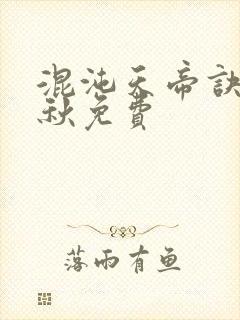 混沌天帝訣
秋免費
落雨有魚